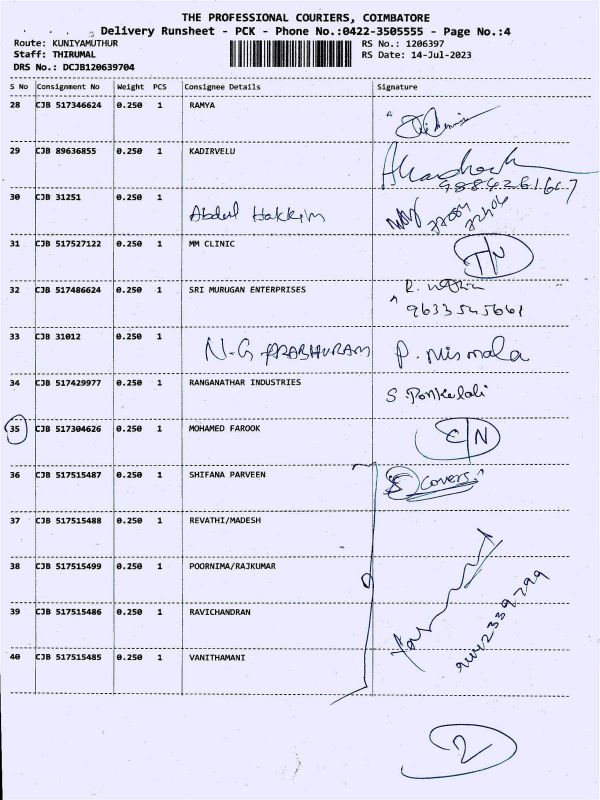 THE PROFESSIONAL COURIERS, COIMBATORE
Delivery Runsheet - PCK - Phone No.:0422-3505555 - Page No.:4
Route: KUNIYAMUTHUR RS No.: 1206397
Staff: THIRUMAL RS Date: 14-Jul-2023
DRS No.: DCJB120639704
S No Consignment No Weight PCS Consignee Details Signature
28 CJB 517346624 0.250 1 RAMYA
29 CJB 89636855 0.250 1 KADIRVELU
30 CJB 31251 0.250 1 Abdul Hakkim
31 CJB 517527122 0.250 1 MM CLINIC
32 CJB 517486624 0.250 1 SRI MURUGAN ENTERPRISES
9633545661
33 CJB 31012 0.250 1 N.G PRABHURAM P. Nirmala
34 CJB 517429977 0.250 1 RANGANATHAR INDUSTRIES
35 CJB 517304626 0.250 1 MOHAMED FAROOK
36 CJB 517515487 0.250 1 SHIFANA PARVEEN 5 covers
37 CJB 517515488 0.250 1 REVATHI/MADESH
38 CJB 517515499 0.250 1 POORNIMA/RAJKUMAR
39 CJB 517515486 0.250 1 RAVICHANDRAN
40 CJB 517515485 0.250 1 VANITHAMANI
2